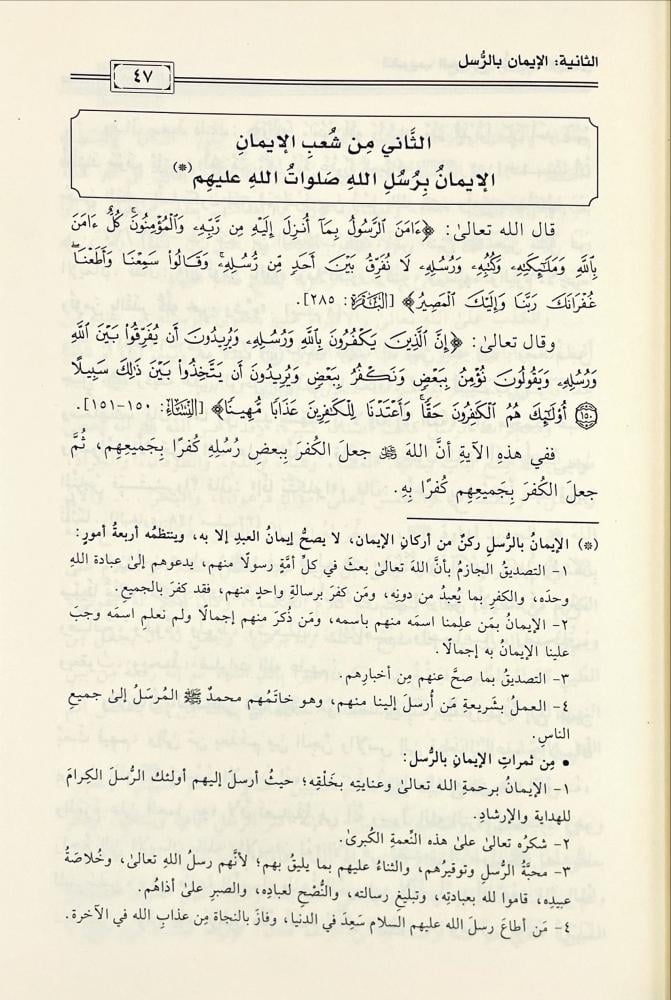 الثانية: الإيمان بالرُّسل
٤٧
الثَّاني مِن شُعبِ الإيمانِ
الإيمانُ بِرُسُلِ اللهِ صَلواتُ اللهِ عليهِم(*)
قال الله تعالىٰ: ﴿ءَامَنَ ٱلرَّسُولُ بِمَآ أُنزِلَ إِلَيْهِ مِن رَّبِّهِۦ وَٱلْمُؤْمِنُونَۚ كُلٌّ ءَامَنَ
بِٱللَّهِ وَمَلَٰٓئِكَتِهِۦ وَكُتُبِهِۦ وَرُسُلِهِۦ لَا نُفَرِّقُ بَيْنَ أَحَدٍ مِّن رُّسُلِهِۦۚ وَقَالُوا۟ سَمِعْنَا وَأَطَعْنَاۖ
غُفْرَانَكَ رَبَّنَا وَإِلَيْكَ ٱلْمَصِيرُ﴾ [البَقَرَة: ٢٨٥].
وقال تعالىٰ: ﴿إِنَّ ٱلَّذِينَ يَكْفُرُونَ بِٱللَّهِ وَرُسُلِهِۦ وَيُرِيدُونَ أَن يُفَرِّقُوا۟ بَيْنَ ٱللَّهِ
وَرُسُلِهِۦ وَيَقُولُونَ نُؤْمِنُ بِبَعْضٍ وَنَكْفُرُ بِبَعْضٍ وَيُرِيدُونَ أَن يَتَّخِذُوا۟ بَيْنَ ذَٰلِكَ سَبِيلًا
﴿١٥٠﴾ أُو۟لَٰٓئِكَ هُمُ ٱلْكَٰفِرُونَ حَقًّاۚ وَأَعْتَدْنَا لِلْكَٰفِرِينَ عَذَابًا مُّهِينًا﴾ [النِّسَاء: ١٥٠-١٥١].
ففي هذِهِ الآيةِ أنَّ اللهَ ﷻ جعلَ الكُفرَ بِبعضِ رُسُلِهِ كُفرًا بِجَميعِهِم، ثُمَّ
جعلَ الكُفرَ بِجَميعِهِم كُفرًا بِهِ.
(*) الإيمانُ بالرُّسلِ ركنٌ من أركانِ الإيمان، لا يصحُّ إيمانُ العبدِ إلا به، وينتظمُه أربعةُ أمورٍ:
١- التصديقُ الجازمُ بأنَّ اللهَ تعالىٰ بعثَ في كلِّ أمَّةٍ رسولًا منهم، يدعوهم إلىٰ عبادة اللهِ
وحدَه، والكفرِ بما يُعبدُ من دونِه، ومَن كفرَ برسالةِ واحدٍ منهم، فقد كفرَ بالجميعِ.
٢- الإيمانُ بمَن علِمنا اسمَه منهم باسمه، ومَن ذُكرَ منهم إجمالًا ولم نعلمِ اسمَه وجبَ
علينا الإيمانُ به إجمالًا.
٣- التصديقُ بما صحَّ عنهم مِن أخبارِهم.
٤- العملُ بشريعةِ مَن أُرسلَ إلينا منهم، وهو خاتَمُهم محمدٌ ﷺ المُرسَلُ إلىٰ جميعِ
الناسِ.
• مِن ثمراتِ الإيمانِ بالرُّسل:
١- الإيمانُ برحمةِ الله تعالىٰ وعنايتِه بخَلْقِه؛ حيثُ أرسلَ إليهم أولئك الرُّسلَ الكِرامَ
للهدايةِ والإرشادِ.
٢- شكرُه تعالىٰ علىٰ هذه النِّعمةِ الكُبرىٰ.
٣- محبَّةُ الرُّسلِ وتوقيرُهم، والثناءُ عليهم بما يليقُ بهم؛ لأنَّهم رسلُ اللهِ تعالىٰ، وخُلاصَةُ
عبيدِه، قاموا لله بعبادتِه، وتبليغِ رسالته، والنُّصْحِ لعبادِه، والصبرِ علىٰ أذاهُم.
٤- مَن أطاعَ رسلَ الله عليهم السلام سَعِدَ في الدنيا، وفازَ بالنجاةِ مِن عذابِ الله في الآخرة.